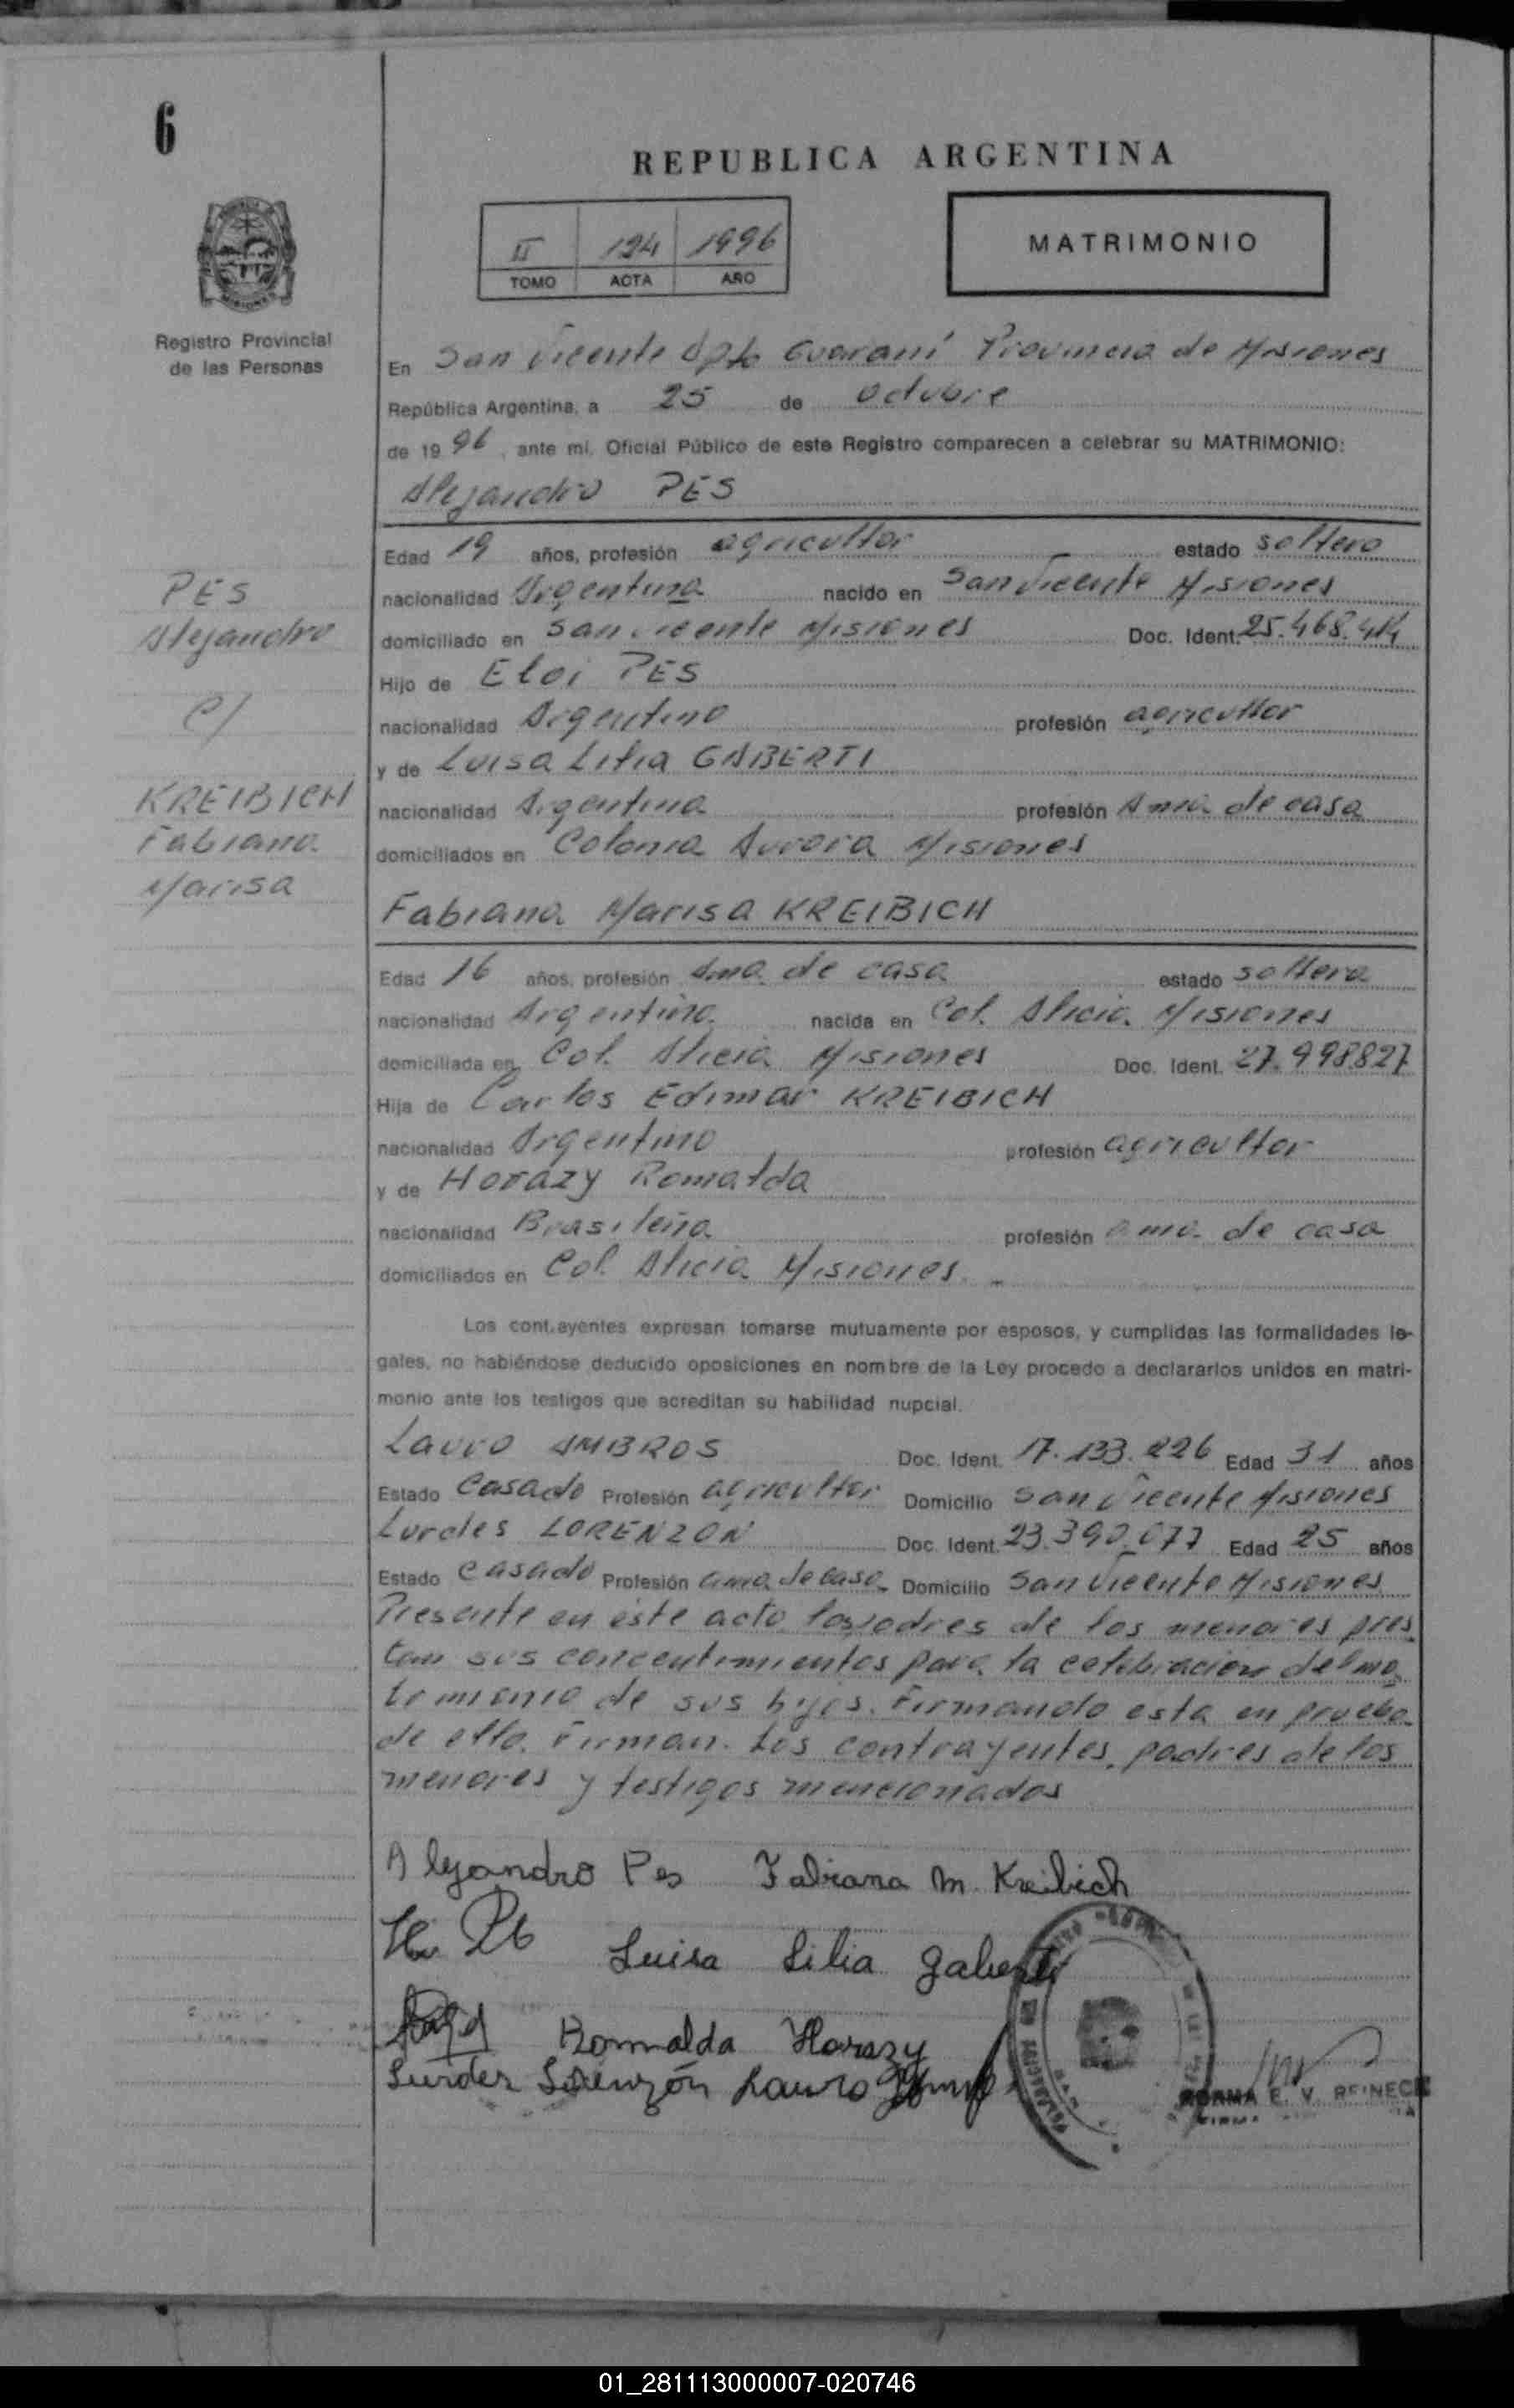 6
REPUBLICA ARGENTINA
II 124 1996
TOMO ACTA AÑO
MATRIMONIO
Registro Provincial
de las Personas
En San Vicente dpto Guaraní Provincia de Misiones
República Argentina, a 25 de octubre
de 1996, ante mi, Oficial Público de este Registro comparecen a celebrar su MATRIMONIO:
Alejandro PES
Edad 19 años, profesión agricultor estado soltero
nacionalidad Argentina nacido en San Vicente Misiones
domiciliado en San Vicente Misiones Doc. Ident. 25.468.
Hijo de Eloi PES
nacionalidad Argentino profesión agricultor
y de Luisa Lilia GABERTI
nacionalidad Argentina profesión Ama de casa
domiciliados en Colonia Aurora Misiones
PES
Alejandro
C/
KREIBICH
Fabiana
Marisa
Fabiana Marisa KREIBICH
Edad 16 años, profesión Ama de casa estado soltera
nacionalidad Argentina nacida en Col. Alicia Misiones
domiciliada en Col. Alicia Misiones Doc. Ident. 27.998827
Hija de Carlos Edimar KREIBICH
nacionalidad Argentino profesión agricultor
y de Horazy Romalda
nacionalidad Brasileña profesión ama de casa
domiciliados en Col. Alicia Misiones. -
Los contrayentes expresan tomarse mutuamente por esposos, y cumplidas las formalidades le-
gales, no habiéndose deducido oposiciones en nombre de la Ley procedo a declararlos unidos en matri-
monio ante los testigos que acreditan su habilidad nupcial.
Lauro AMBROS Doc. Ident. 17.133.226 Edad 31 años
Estado Casado Profesión agricultor Domicilio San Vicente Misiones
Lurdes LORENZON Doc. Ident. 23.390.077 Edad 25 años
Estado Casado Profesión ama de casa Domicilio San Vicente Misiones
Presente en este acto los padres de los menores pres
tan sus concentimientos para la celebracion del ma
trimonio de sus hijos. Firmando esta en prueba
de ello. Firman. Los contrayentes, padres de los
menores y testigos mencionados
Alejandro Pes Fabiana M. Kreibich
Luisa Lilia Gaberti
Romalda Horazy
Lurdes Lorenzón Lauro
NORMA E. V. REINECK
01_281113000007-020746